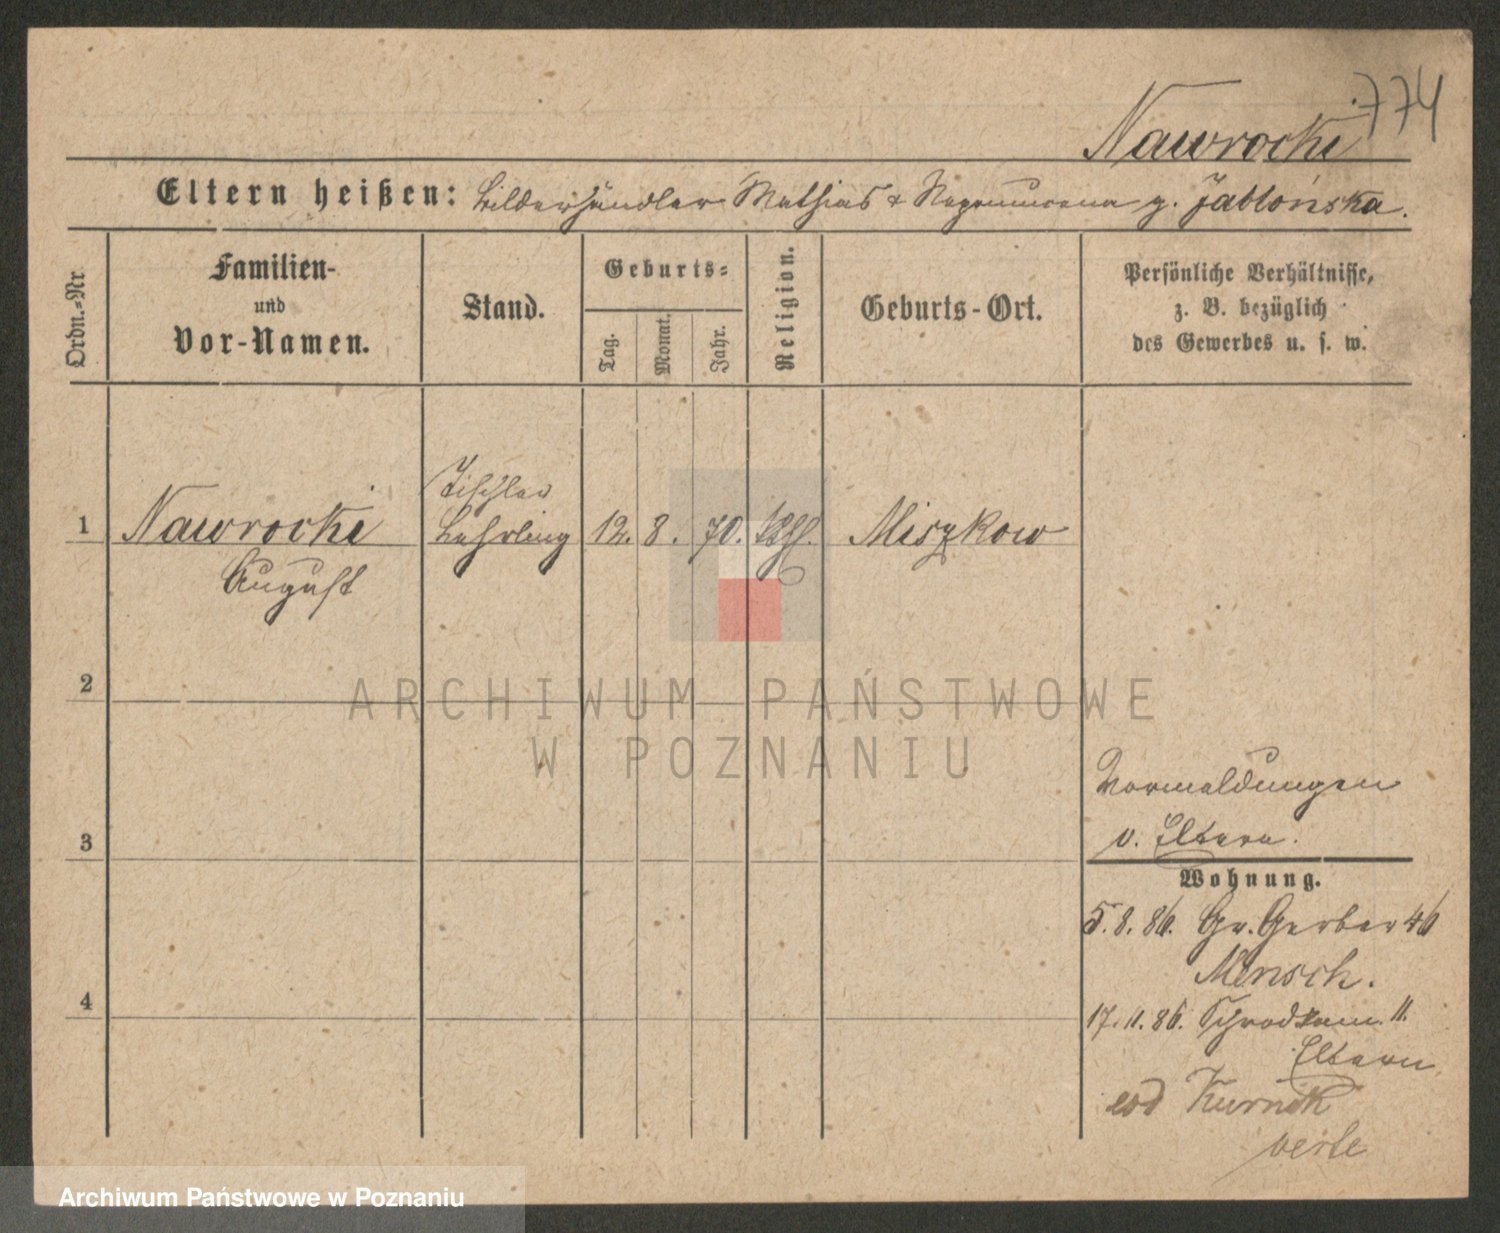 774
Nawrocki
Eltern heißen: Bilderhändler Mathias & Nepomucena g. Jabłońska.
Ordn.-Nr.
Familien-
und
Vor-Namen.
Stand.
Geburts-
Tag.
Monat.
Jahr.
Religion.
Geburts-Ort.
Persönliche Verhältnisse,
z. B. bezüglich
des Gewerbes u. s. w.
Tischler
1 Nawrocki Lehrling 12. 8. 70. kth. Miszkow
August
2
ARCHIWUM PAŃSTWOWE
W POZNANIU
Vormeldungen
3
v. Eltern.
Wohnung.
5. 8. 86. Gr. Gerber 46
Mensch.
4
17. 11. 86. Schrodkam. 11.
Eltern
eod Kurnik
verte
Archiwum Państwowe w Poznaniu